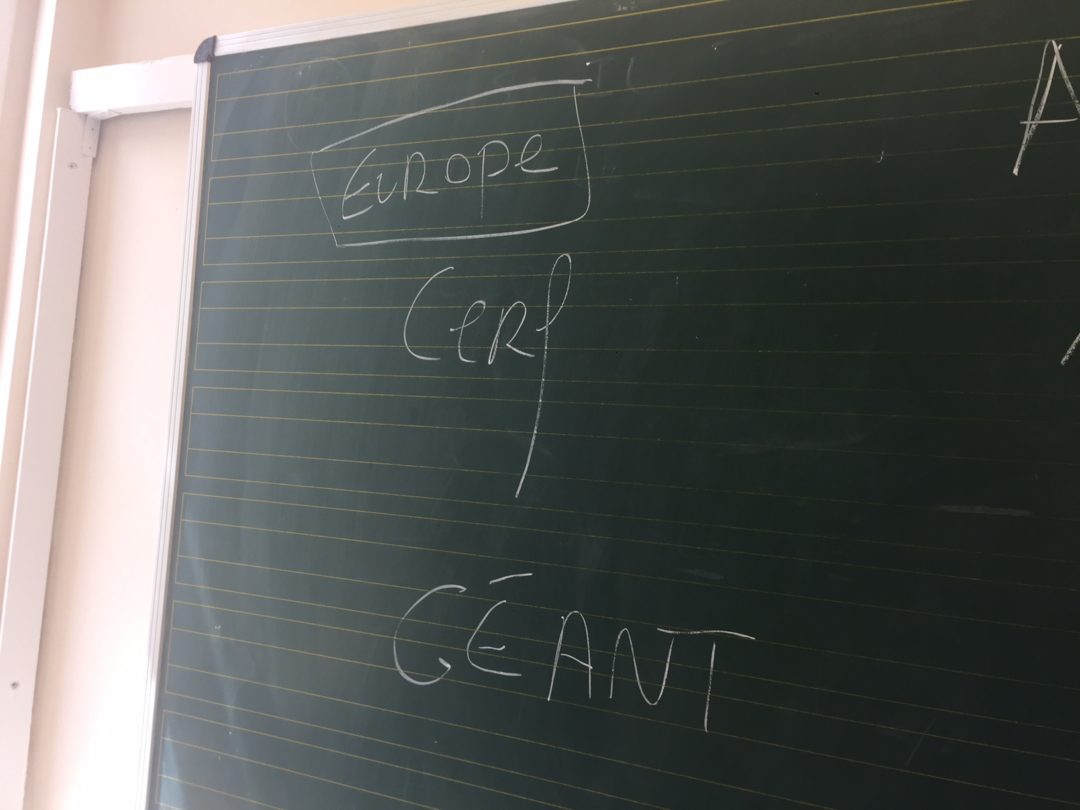 Europe
Cerf
GÉANT
A